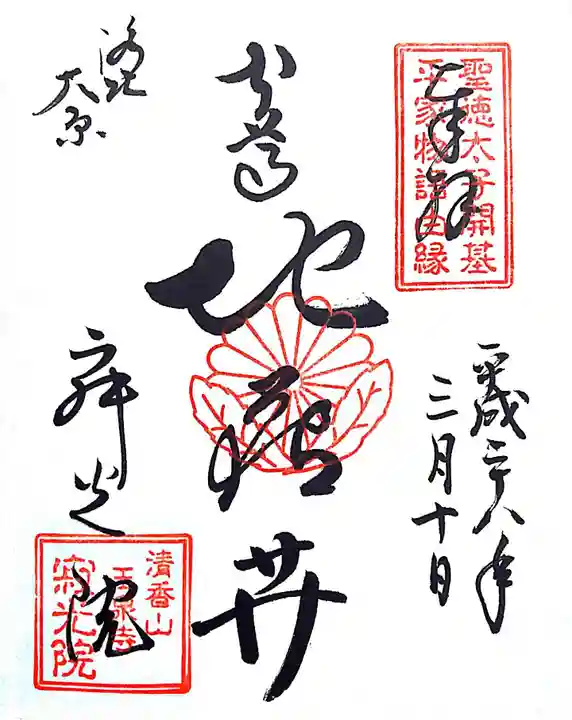 奉拝
聖徳太子開基
平家物語由縁
平成二八年
三月十日
本尊
地蔵菩
洛北
大原
寂光院
清香山
玉泉寺
寂光院